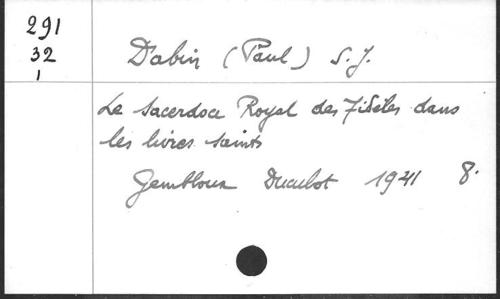 291
32
1
Dabin (Paul) S.J.
Le Sacerdoce Royal des Fidèles dans
les livres saints
Gembloux Duculot 1941 8.